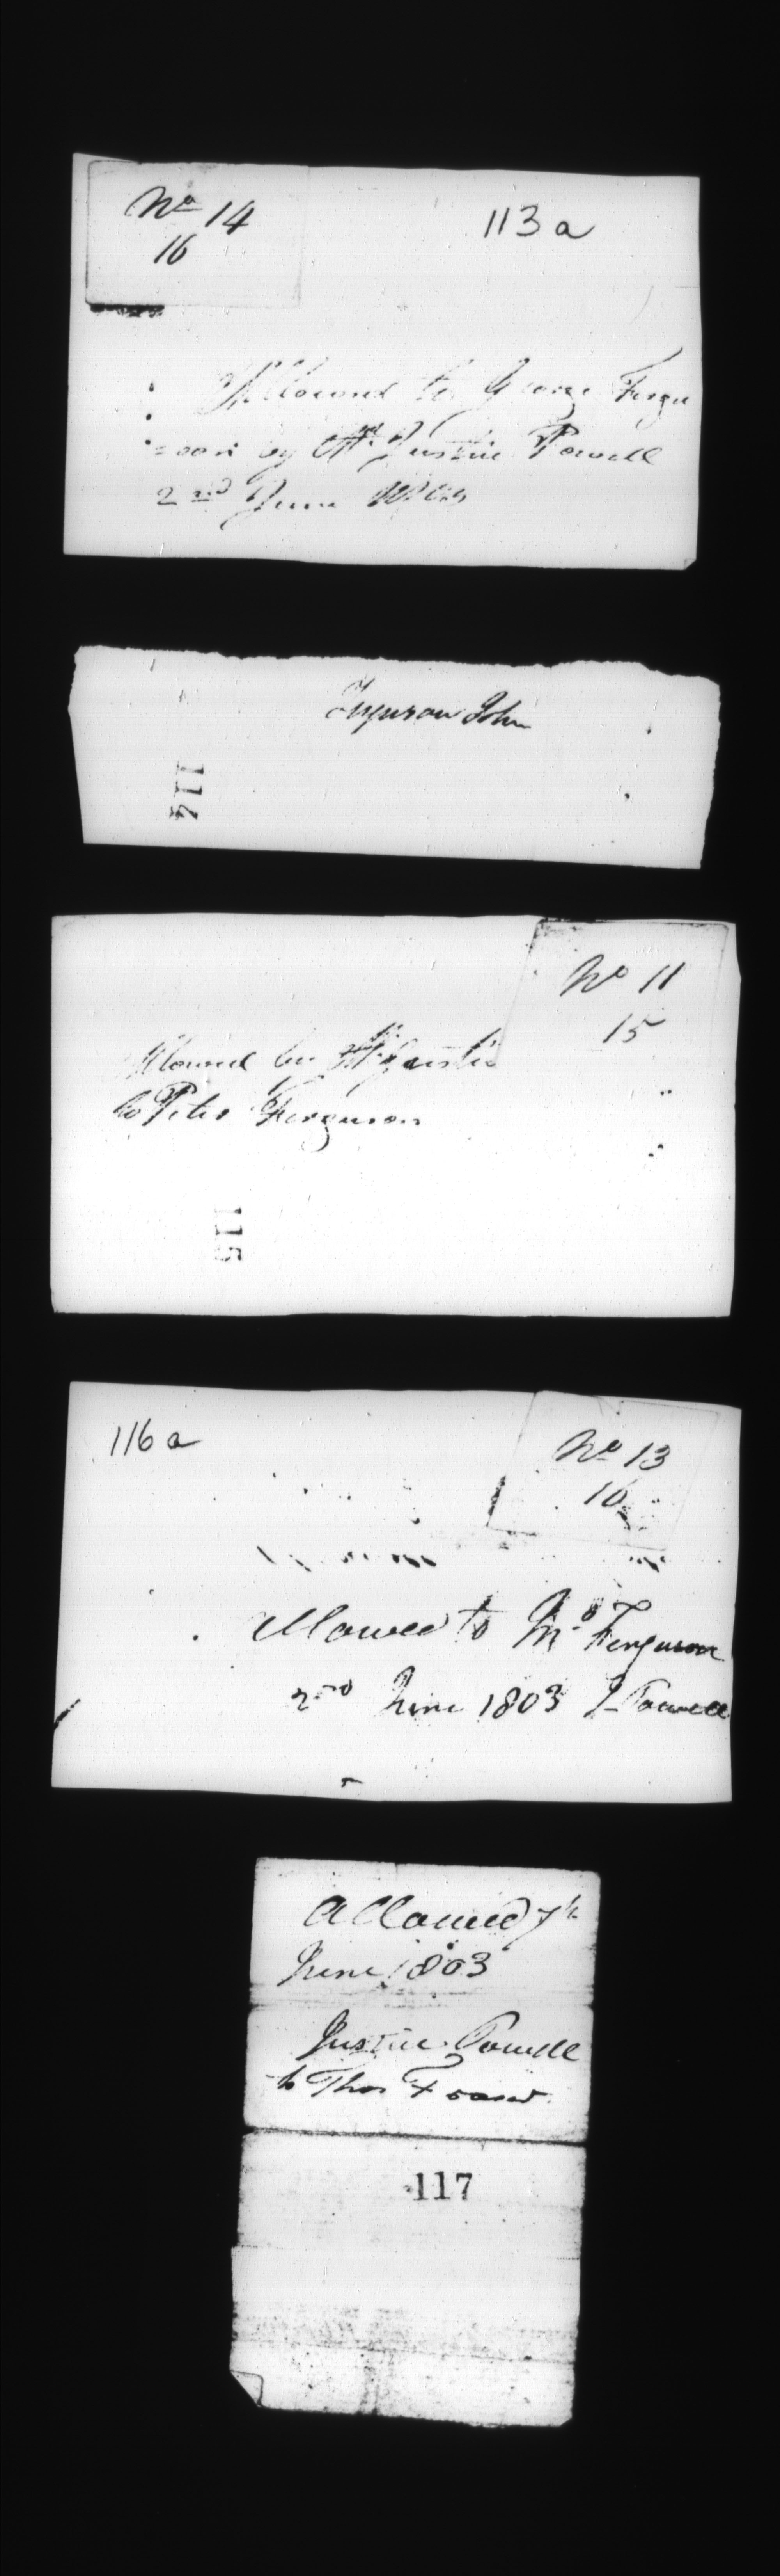 No 14
16
113 a
Allowed to George Fergu
=son by Mr Justice Powell
2nd June 1803
Ferguson John
114
No 11
15
Allowed by Mr Justice
to Peter Ferguson
115
116 a
No 13
16
Allowed to Ferguson
2nd June 1803 J Powell
Allowed 7th
June 1803
Justice Powell
to Thos Fraser
117